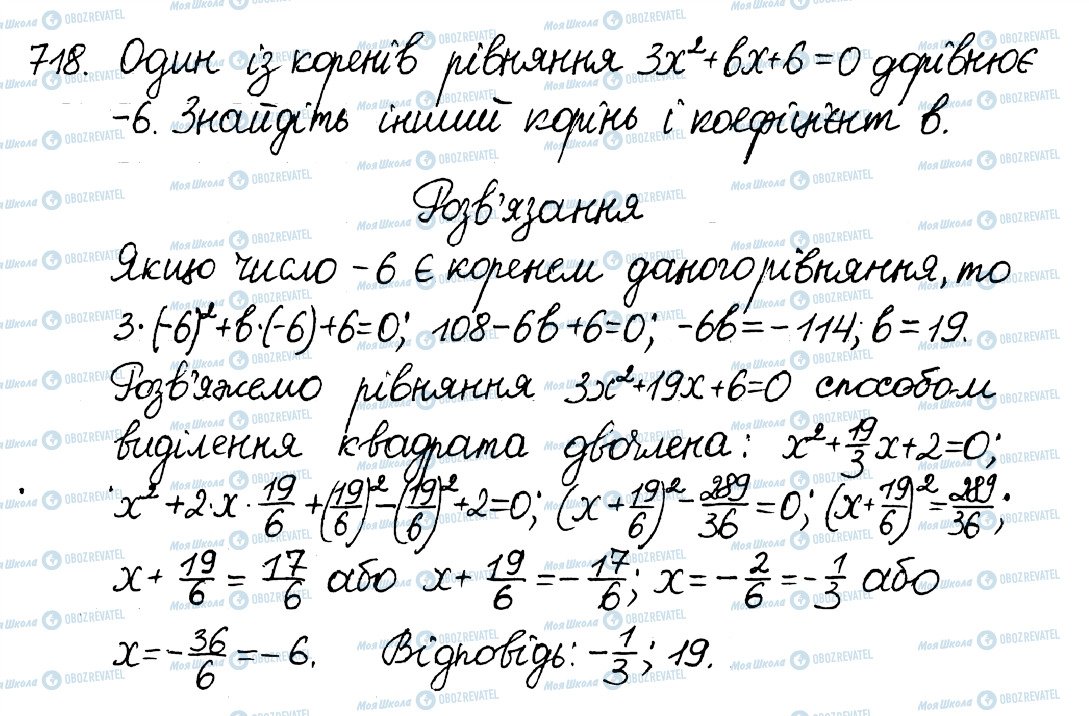 718. Один із коренів рівняння 3x²+bx+6=0 дорівнює
-6. Знайдіть інший корінь і коефіцієнт b.
Розв'язання
Якщо число -6 є коренем даного рівняння, то
3·(-6)²+b·(-6)+6=0; 108-6b+6=0; -6b=-114; b=19.
Розв'яжемо рівняння 3x²+19x+6=0 способом
виділення квадрата двочлена: x²+19/3x+2=0;
x²+2·x·19/6+(19/6)²-(19/6)²+2=0; (x+19/6)²-289/36=0; (x+19/6)²=289/36;
x+19/6=17/6 або x+19/6=-17/6; x=-2/6=-1/3 або
x=-36/6=-6. Відповідь: -1/3; 19.